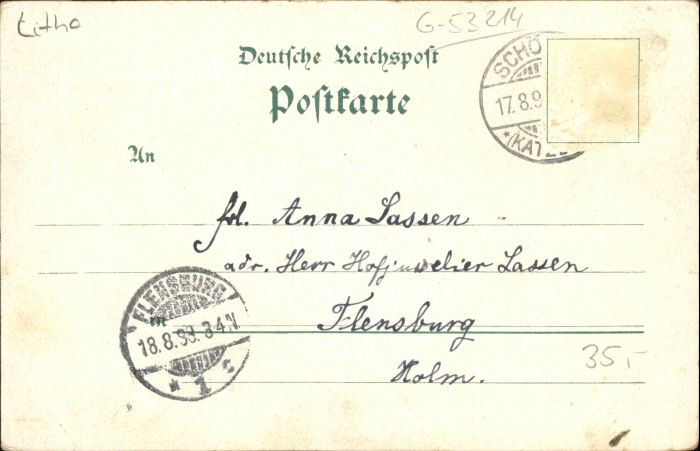 Litho
G-53214
Deutsche Reichspost
Postkarte
SCHÖ
17.8.9
*(KATZ
An
frl. Anna Lassen
adr. Herr Hofjuwelier Lassen
FLENSBURG
in
Flensburg
18.8.99. 3-4.N.
35,-
* 1 c
Holm.